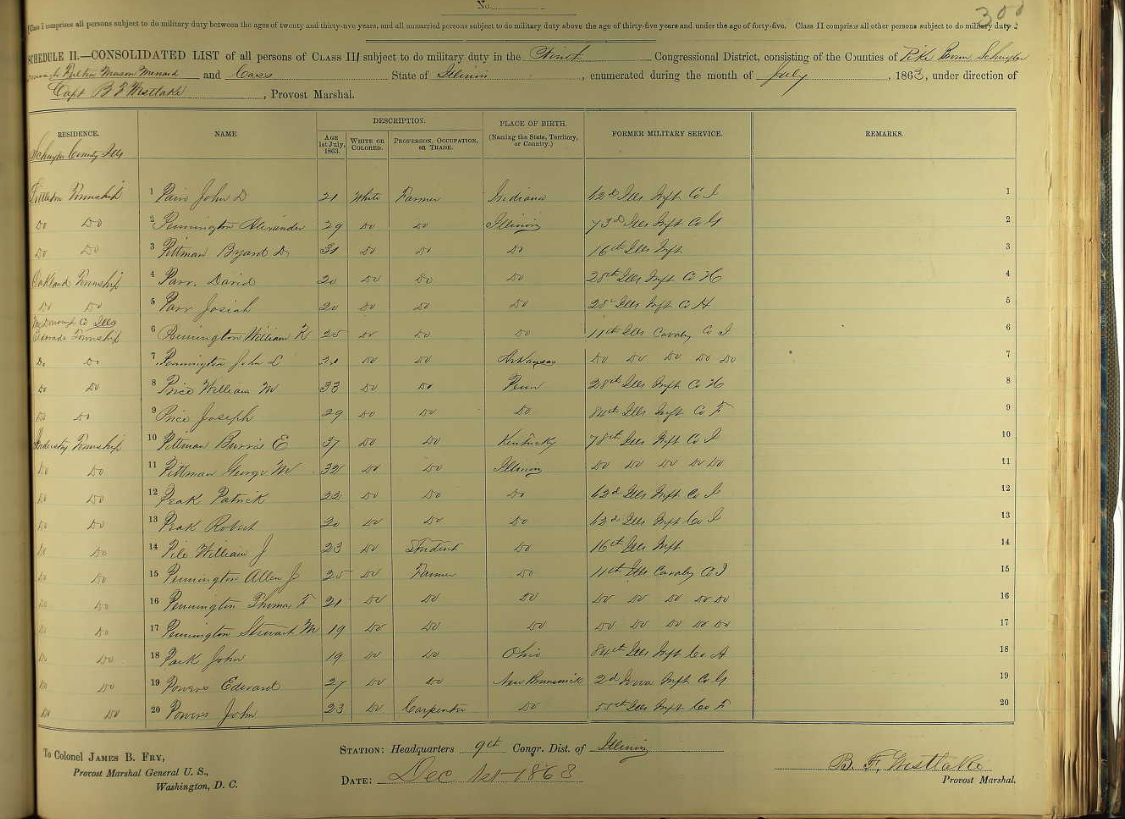 No.
300
Class I comprises all persons subject to do military duty between the ages of twenty and thirty-five years, and all unmarried persons subject to do military duty above the age of thirty-five years and under the age of forty-five. Class II comprises all other persons subject to do military duty.
SCHEDULE II.—CONSOLIDATED LIST of all persons of CLASS III subject to do military duty in the Ninth Congressional District, consisting of the Counties of Pike Brown Schuyler
Fulton Mason Menard and Cass State of Illinois, enumerated during the month of July, 1863, under direction of
Capt B F Westlake, Provost Marshal.
RESIDENCE. NAME DESCRIPTION. PLACE OF BIRTH. FORMER MILITARY SERVICE. REMARKS.
AGE 1st July, 1863. WHITE OR COLORED. PROFESSION, OCCUPATION, OR TRADE. (Naming the State, Territory, or Country.)
Schuyler County Ills
Littleton Township 1 John D 21 White Farmer Indiana 62d Ills Inft Co I 1
Do Do 2 Pennington Alexander 29 Do Do Illinois 73d Ills Inft Co G 2
Do Do 3 Pittman Byard D 31 Do Do Do 16th Ills Inft 3
Oakland Township 4 Parr David 20 Do Do Do 28th Ills Inft Co H 4
Do Do 5 Parr Josiah 20 Do Do Do 28th Ills Inft Co H 5
McDonough Co Ills
Township 6 Pennington William K 25 Do Do Do 11th Ills Cavalry Co I 6
Do Do 7 Pennington John C Do Do Arkansas Do Do Do Do Do 7
Do Do 8 Price William M 33 Do Do Penn 28th Ills Inft Co H 8
Do Do 9 Price Joseph 29 Do Do Do 84th Ills Inft Co F 9
Industry Township 10 Pittman Burris E 37 Do Do Kentucky 78th Ills Inft Co I 10
Do Do 11 Pittman George W 32 Do Do Illinois Do Do Do Do Do 11
Do Do 12 Peak Patrick 22 Do Do Do 62d Ills Inft Co I 12
Do Do 13 Peak Robert 20 Do Do Do 62d Ills Inft Co I 13
Do Do 14 Pile William J 23 Do Student Do 16th Ills Inft 14
Do Do 15 Pennington Allen J 25 Do Farmer Do 11th Ills Cavalry Co I 15
Do Do 16 Pennington Thomas F 21 Do Do Do Do Do Do Do Do 16
Do Do 17 Pennington Stewart M 19 Do Do Do Do Do Do Do Do 17
Do Do 18 Park John 19 Do Do Ohio 84th Ills Inft Co A 18
Do Do 19 Powers Edward 27 Do Do New Brunswick 2d Iowa Inft Co G 19
Do Do 20 Powers John 23 Do Carpenter Do 55th Ills Inft Co F 20
To Colonel JAMES B. FRY,
Provost Marshal General U. S.,
Washington, D. C.
STATION: Headquarters 9th Congr. Dist. of Illinois
DATE: Dec 1st 1863
B. F. Westlake
Provost Marshal.